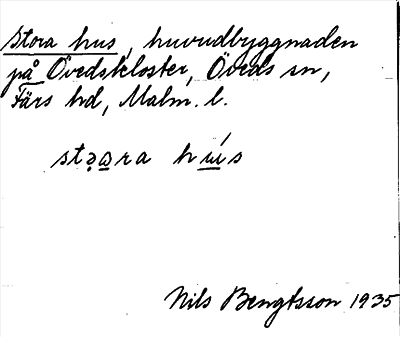 Stora hus, huvudbyggnaden
på Övedskloster, Öveds sn,
Färs hd, Malm. l.
Nils Bengtsson 1935